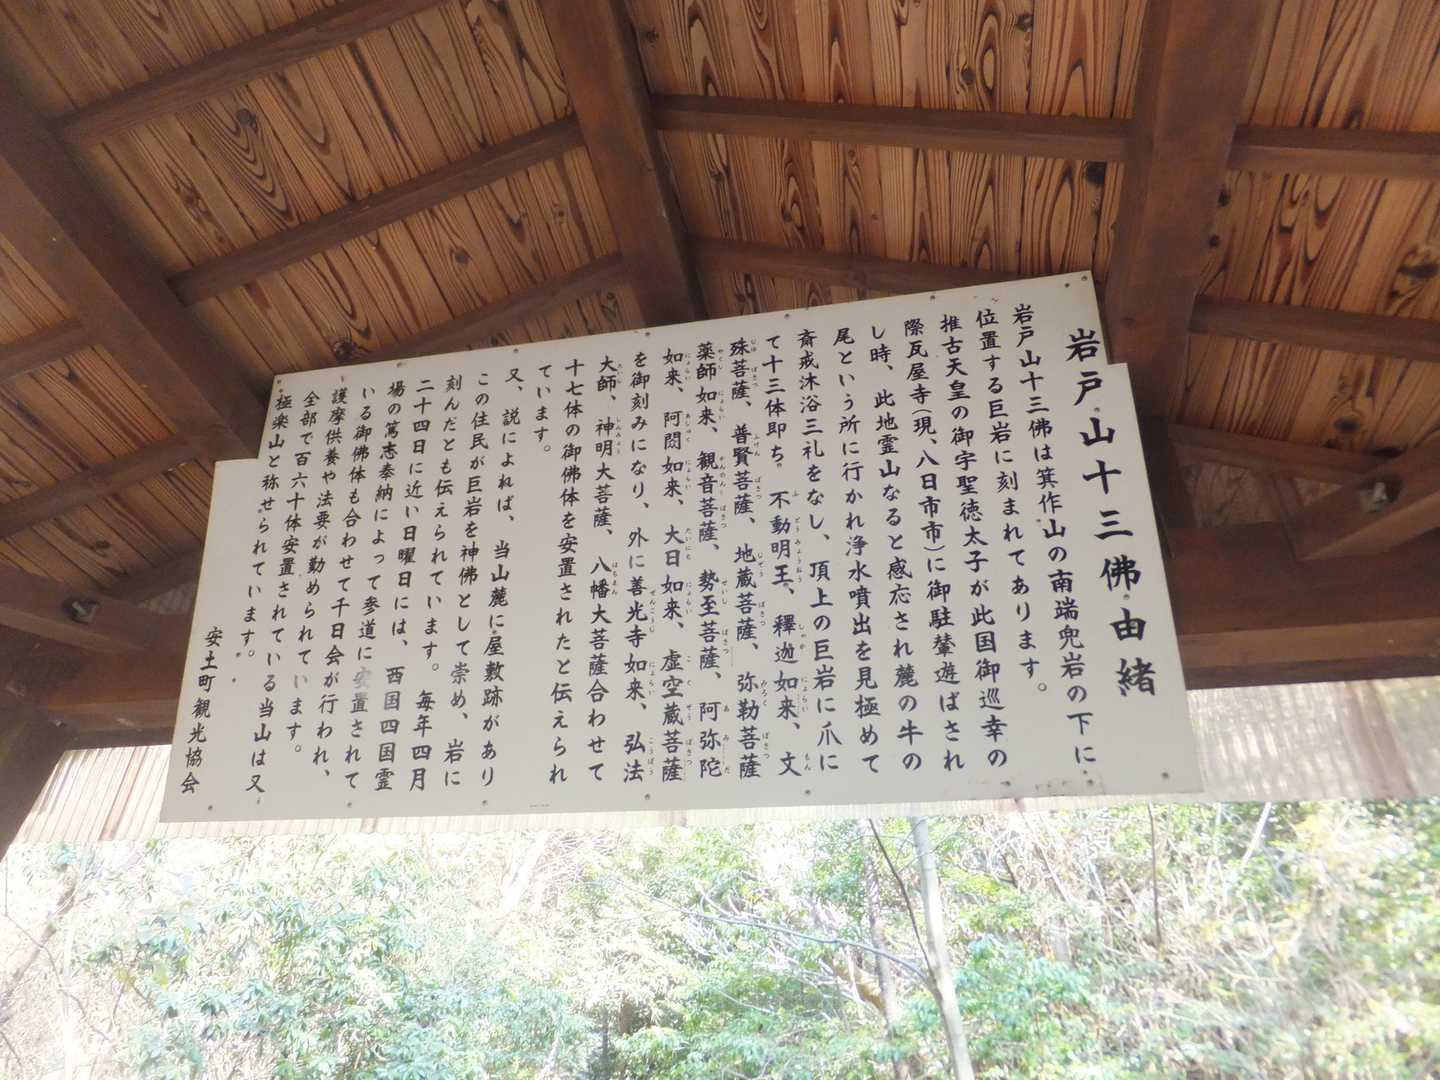 岩戸山十三佛由緒
岩戸山十三佛は箕作山の南端兜岩の下に
位置する巨岩に刻まれてあります。
推古天皇の御宇聖徳太子が此国御巡幸の
際瓦屋寺(現、八日市市)に御駐輦遊ばされ
し時、此地霊山なると感応され麓の牛の
尾という所に行かれ浄水噴出を見極めて
斎戒沐浴三礼をなし、頂上の巨岩に爪に
て十三体即ち不動明王、釋迦如来、文
殊菩薩、普賢菩薩、地蔵菩薩、弥勒菩薩
薬師如来、観音菩薩、勢至菩薩、阿弥陀
如来、阿閦如来、大日如来、虚空蔵菩薩
を御刻みになり、外に善光寺如来、弘法
大師、神明大菩薩、八幡大菩薩合わせて
十七体の御佛体を安置されたと伝えられ
ています。
又、説によれば、当山麓に屋敷跡があり
この住民が巨岩を神佛として崇め、岩に
刻んだとも伝えられています。毎年四月
二十四日に近い日曜日には、西国四国霊
場の篤志奉納によって参道に安置されて
いる御佛体も合わせて千日会が行われ、
護摩供養や法要が勤められています。
全部で百六十体安置されている当山は又
極楽山と称せられています。
安土町観光協会